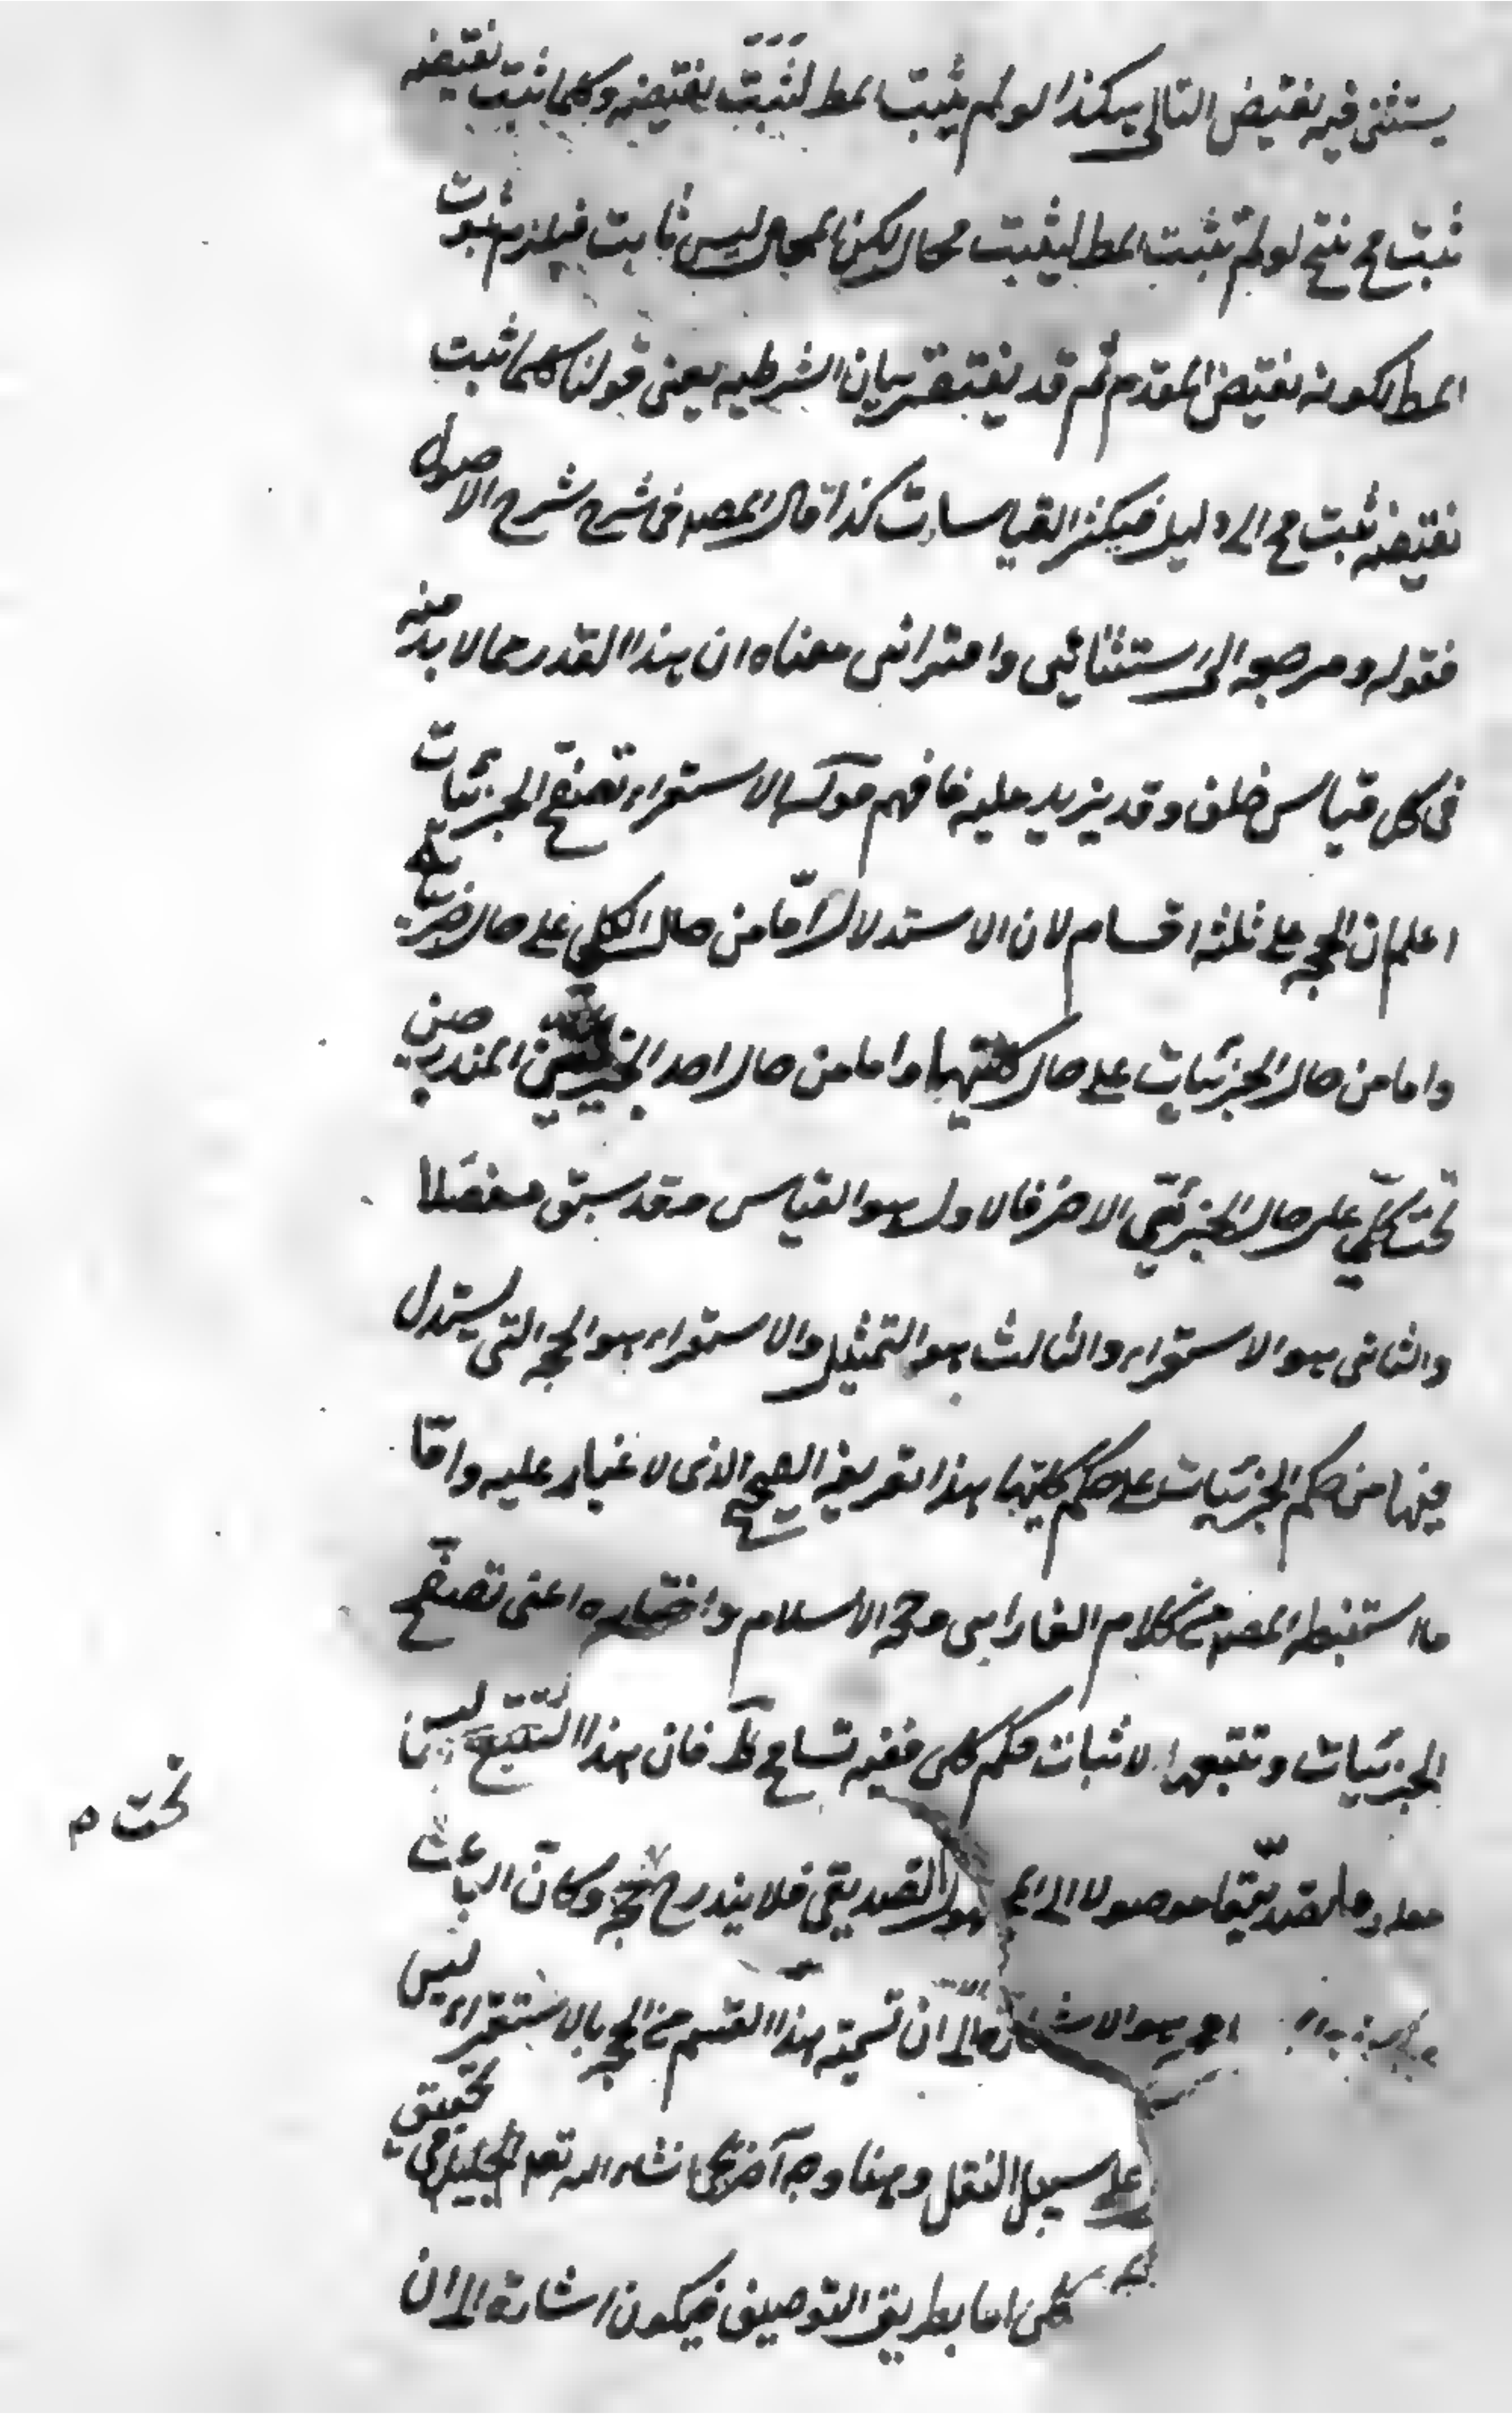 يستثنى فيه نقيض التالى هكذا لو لم يثبت المط لثبت نقيضه وكلما ثبت نقيضه
ثبت مح ينتج لو لم يثبت المط ليثبت محال لكن المحال ليس ثابت فيلزم ثبوت
المط لكونه نقيض المقدم ثم قد يفتقر بيان الشرطيه يعنى قولنا كلما ثبت
نقيضه ثبت مح الى دليل فيكثر القياسات كذا قال المصه فى شرح شرح الاصول
فقوله ومرجعه الى استثنائى واقترانى معناه ان هذا القدر مما لا بد منه
فى كل قياس خلف وقد يزيد عليه فافهم قوله الاستقراء تصفح الجزئيات
اعلم ان الحجه على ثلثه اقسام لان الاستدلال امّا من حال الكلى على حال جزئياته
واما من حال الجزئيات على حال كليتها واما من حال احد الجزئيين المندرجين
تحت كلى على حال الجزئى الاخر فالاول هو القياس وقد سبق مفصلا
والثانى هو الاستقراء والثالث هو التمثيل والاستقراء هو الحجه التى يستدل
فيها من حكم الجزئيات على حكم كليتها هذا تعريفه الصحيح الذى لا غبار عليه وامّا
ما استنبطه المصه من كلام الفارابى وحجه الاسلام واختاره اعنى تصفح
الجزئيات وتتبعها لاثبات حكم كلى ففيه تسامح ظ فان هذا التتبع ليس
معلوما تصديقيّا موصولا الى المجهول التصديقى فلا يندرج تحت الحجه وكانّ الباعث
هو الاشارة الى ان تسميه هذا القسم من الحجه بالاستقراء ليس
على سبيل النقل وههنا وجه آخر يجئ انشاء الله تعه الجليل فى تحقيق
كلى اما بطريق التوصيف فيكون اشارة الى ان
تحت م